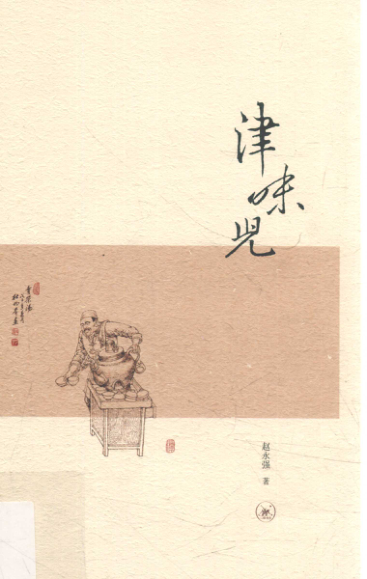 津味児
赵永强 著